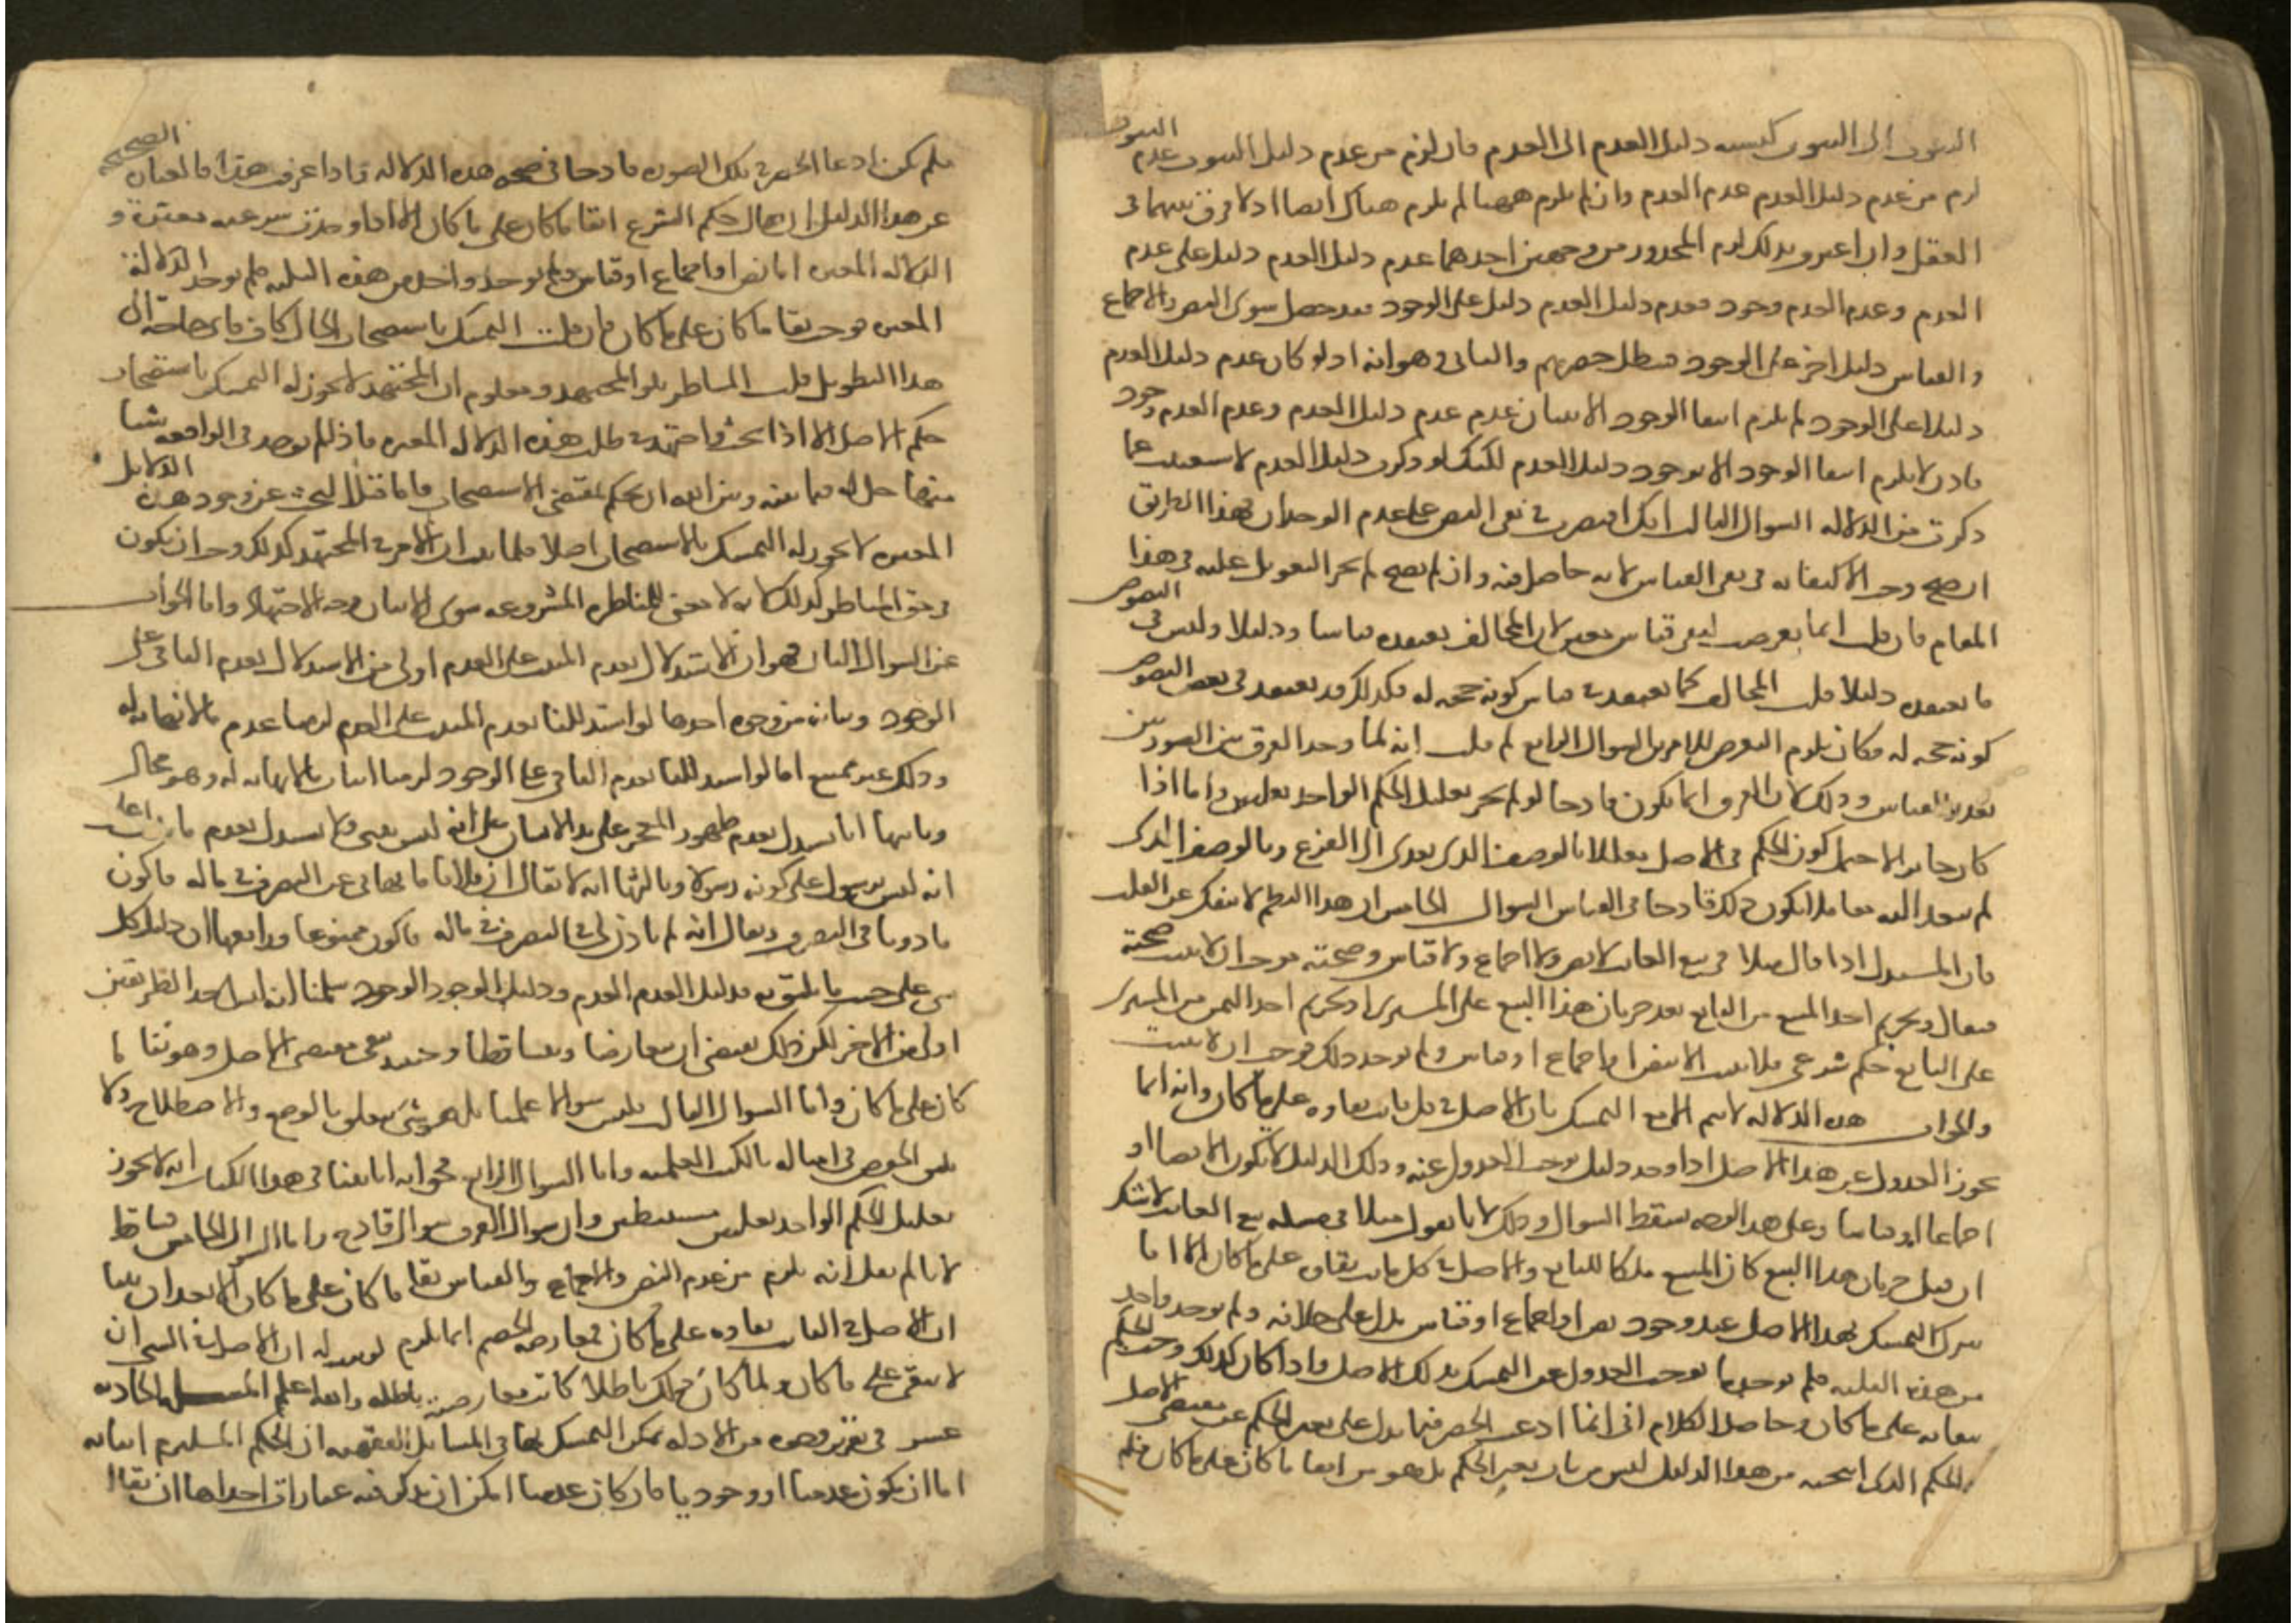 الثبوت الى الثبوت كنسبة دليل العدم الى العدم فان لزم من عدم دليل الثبوت عدم الثبوت
لزم من عدم دليل العدم عدم العدم وان لم يلزم ههنا لم يلزم هناك ايضا اذ لا فرق بينهما في
العقل وان اعترفوا بذلك لزم المحذور من وجهين احدهما عدم دليل العدم دليل على عدم
العدم وعدم العدم وجود فعدم دليل العدم دليل على الوجود فقد حصل سوى النص والاجماع
والقياس دليل اخر على الوجود فبطل حصرهم والثاني هو انه اذ لو كان عدم دليل العدم
دليلا على الوجود لم يلزم انتفا الوجود الا ببيان عدم عدم دليل العدم وعدم العدم وجود
فاذن لا يلزم انتفا الوجود الا بوجود دليل العدم لكنك لو ذكرت دليل العدم لاستغنيت عما
ذكرت من الدلالة السوال الثالث انك اقتصرت في نفي النص على عدم الوجدان فهذا الطريق
ان صح وجب الاكتفا به في نفي القياس لانه حاصل فيه وان لم يصح لم يجز التعويل عليه في هذا
المقام فان قلت انما تعرضت لنفي قياس معين لان المخالف يعتقده قياسا ودليلا وليس في النصوص
ما يعتقده دليلا قلت المخالف كما يعتقد في قياس كونه حجة له فكذلك قد يعتقد في بعض النصوص
كونه حجة له فكان يلزم التعرض للامرين السوال الرابع لم قلت انه لما وجد الفرق بين الصورتين
تعذر القياس وذلك لان الفرق انما يكون قادحا لو لم يجز تعليل الحكم الواحد بعلتين واما اذا
كان جائزا لاحتمل كون الحكم في الاصل معللا بالوصف الذي تعدى الى الفرع وبالوصف الذي
لم يتعد اليه معا فلا يكون ذلك قادحا في القياس السوال الخامس ان هذا النظم لا ينفك عن القلب
فان المستدل اذا قال مثلا في بيع الغائب لا نص ولا اجماع ولا قياس في صحته فوجب ان لا يثبت صحته
فيقال وتحريم اخذ المبيع من البايع بعد جريان هذا البيع على المشتري او تحريم اخذ الثمن من المشتري
على البايع حكم شرعي فلا يثبت الا بنص او اجماع او قياس ولم يوجد ذلك فوجب ان لا يثبت
والجواب هذه الدلالة لا تتم الا مع التمسك بان الاصل في كل ثابت بقاوه على ما كان وانه انما
يجوز العدول عن هذا الاصل اذا وجد دليل يوجب العدول عنه وذلك الدليل لا يكون الا نصا او
اجماعا او قياسا وعلى هذا الوجه يسقط السوال وذلك لانا نقول مثلا في مسلة بيع الغائب لا شك
ان قبل جريان هذا البيع كان المبيع ملكا للبايع والاصل في كل ثابت بقاوه على ما كان الا انا
نترك التمسك بهذا الاصل عند وجود نص او اجماع او قياس يدل على خلافه ولم يوجد واحد
من هذه الثلثة فلم يوجد ما يوجب العدول عن التمسك بذلك الاصل واذا كان كذلك وجب الحكم
ببقائه على ما كان وحاصل الكلام اني انما ادعيت الحصر فيما يدل على تغير الحكم عن مقتضى الاصل
والحكم الذي انتجته من هذا الدليل ليس من باب تغير الحكم بل هو من ابقا ما كان على ما كان فلم
فلم يكن ادعا الحصر في تلك الصورة قادحا في صحة هذه الدلالة فاذا عرفت هذا فالعبارة الصحيحة
عن هذا الدليل ان يقال حكم الشرع ابقا ما كان على ما كان الا اذا وجدت شرعية معتبرة و
الدلالة المغيرة اما نص او اجماع او قياس ولم يوجد واحد من هذه الثلثة فلم يوجد الدلالة
المغيرة فوجب بقا ما كان على ما كان فان قلت التمسك باستصحاب الحال كاف فاي حاجة الى
هذا التطويل قلت المناظر تلو المجتهد ومعلوم ان المجتهد لا يجوز له التمسك باستصحاب
حكم الاصل الا اذا بحث واجتهد في طلب هذه الدلالة المغيرة فاذا لم يجد في الواقعة شيا
منها حل له فيما بينه وبين الله ان يحكم بمقتضى الاستصحاب فاما قبل البحث عن وجود هذه الدلايل
المغيرة لا يجوز له التمسك بالاستصحاب اصلا فلما ثبت ان الامر في المجتهد كذلك وجب ان يكون
في حق المناظر كذلك لانه لا معنى للمناظرة المشروعة سوى بيان وجه الاجتهاد واما الجواب
عن السوال الثاني فهو ان الاستدلال بعدم المثبت على العدم اولى من الاستدلال بعدم النافي على
الوجود وبيانه من وجوه احدها لو استدللنا بعدم المثبت على العدم لزمنا عدم ما لا نهاية له
وذلك غير ممتنع اما لو استدللنا بعدم النافي على الوجود لزمنا اثبات ما لا نهاية له وهو محال
وثانيها انا نستدل بعدم ظهور المعجز على يد الانسان على انه ليس بنبي ولا نستدل بعدم ما يدل على
انه ليس برسول على كونه رسولا وثالثها انه لا يقال ان فلانا ما نهاني عن التصرف في ماله فاكون
ماذونا في التصرف ويقال انه لم ياذن لي في التصرف في ماله فاكون ممنوعا ورابعها ان دليل كل
شي على حسب ما يليق به فدليل العدم العدم ودليل الوجود الوجود سلمنا انه ليس احد الطريقين
اولى من الاخر لكن ذلك يقتضي ان يتعارضا ويتساقطا وحينئذ يبقى مقتضى الاصل وهو بقا ما
كان على ما كان واما السوال الثالث فليس سوالا علميا بل هو شي يتعلق بالوضع والاصطلاح ولا
يليق الخوض في امثاله بالكتب العلمية واما السوال الرابع فجوابه انا بينا في هذا الكتاب انه لا يجوز
تعليل الحكم الواحد بعلتين مستنبطتين وان سوال الفرق سوال قادح واما السوال الخامس فساقط
لانا لم نقل انه يلزم من عدم النص والاجماع والقياس بقا ما كان على ما كان الا بعد ان بينا
ان الاصل في الثابت بقاوه على ما كان فمعارضة الخصم انما تلزم لو بين له ان الاصل في الشي ان
لا يبقى على ما كان ولما كان ذلك باطلا كانت معارضته باطلة والله اعلم المسلة الحادية
عشر في تقرير وجوه من الادلة يمكن التمسك بها في المسائل الفقهية ان الحكم المستلزم اثباته
اما ان يكون عدميا او وجوديا فان كان عدميا امكن ان يذكر فيه عبارات احداها ان يقال